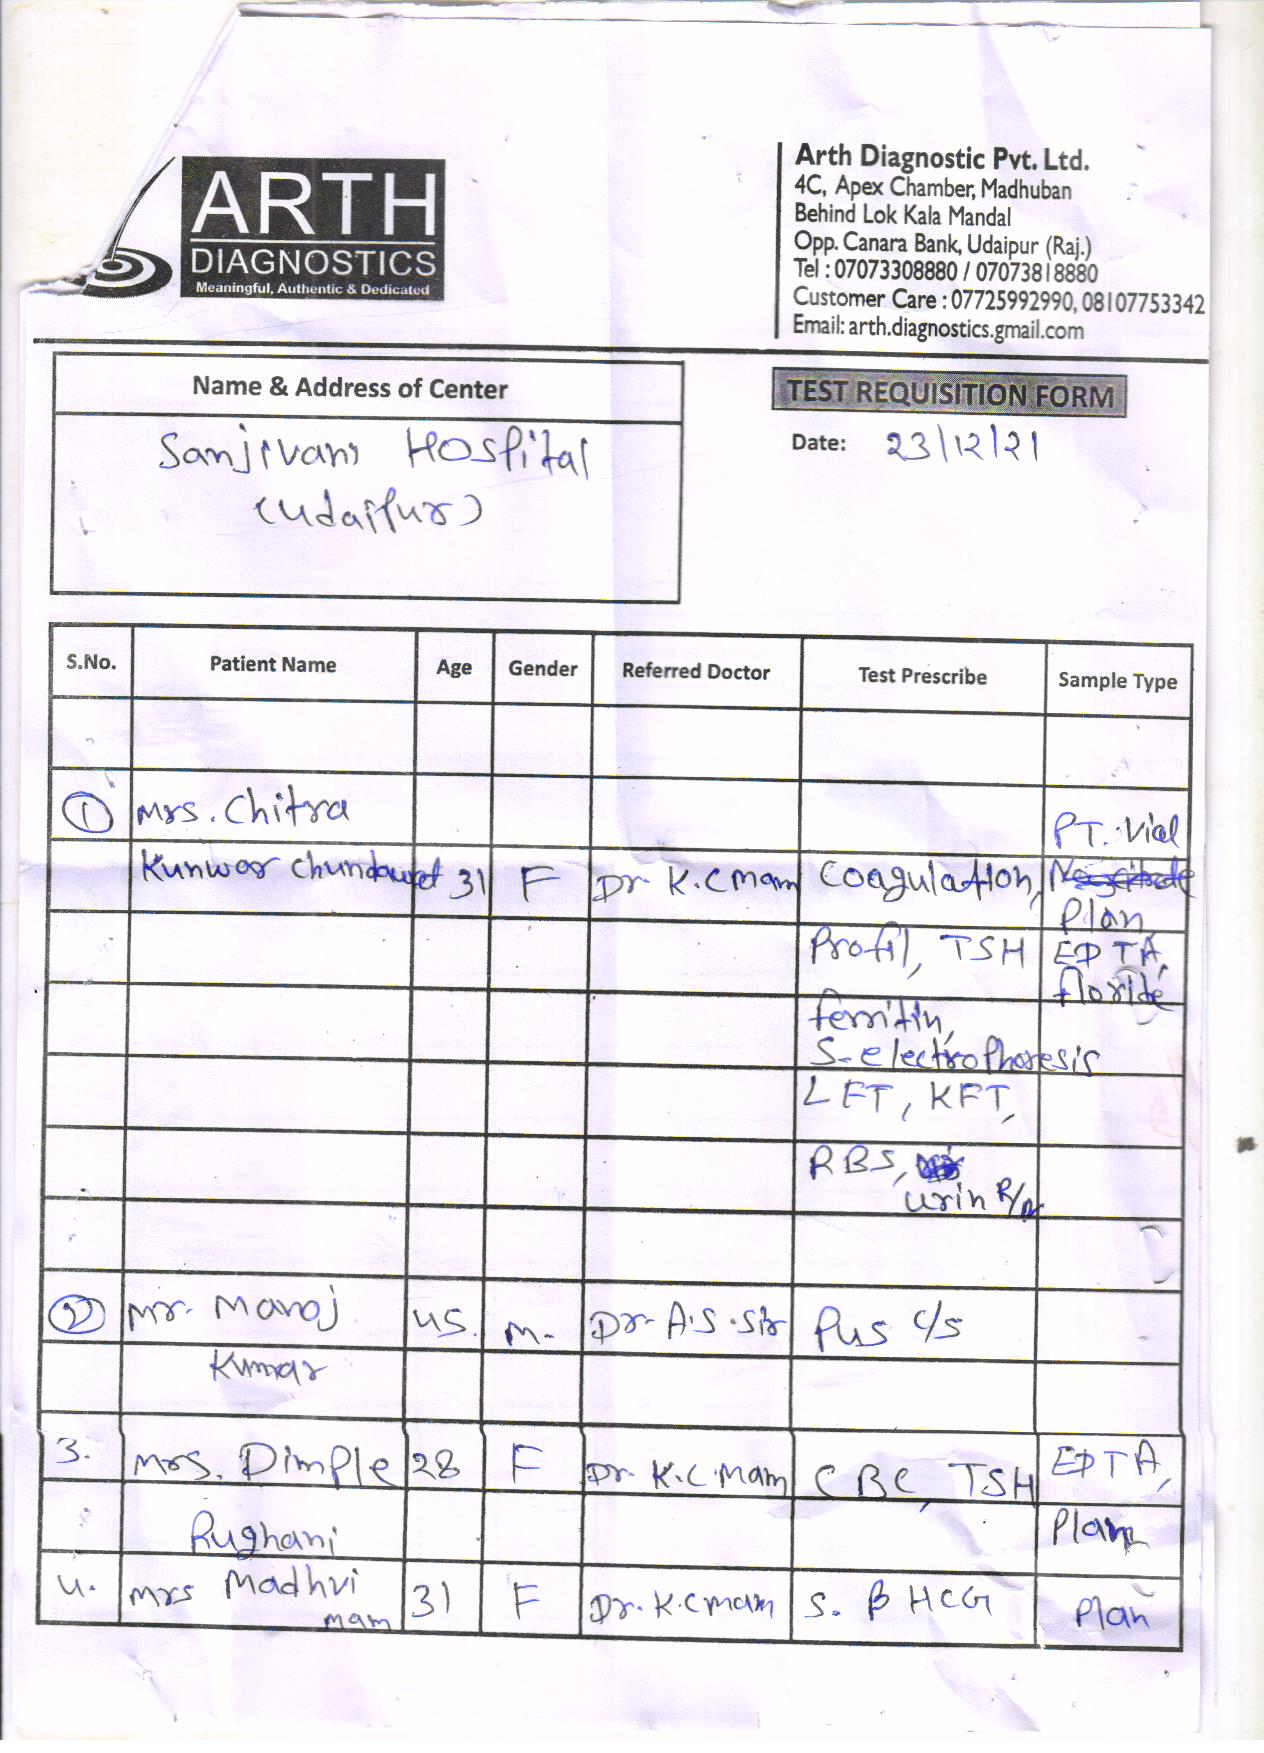 ARTH
DIAGNOSTICS
Meaningful, Authentic & Dedicated
Arth Diagnostic Pvt. Ltd.
4C, Apex Chamber, Madhuban
Behind Lok Kala Mandal
Opp. Canara Bank, Udaipur (Raj.)
Tel : 07073308880 / 07073818880
Customer Care : 07725992990, 08107753342
Email: arth.diagnostics.gmail.com
Name & Address of Center
Sanjivani Hospital
(Udaipur)
TEST REQUISITION FORM
Date: 23/12/21
S.No. Patient Name Age Gender Referred Doctor Test Prescribe Sample Type
1 Mrs. Chitra PT. Vial
Kunwar Chundawat 31 F Dr K.C Mam Coagulation,
Plan,
Profil, TSH EDTA,
floride
ferritin,
S-electrophoresis
LFT, KFT,
RBS,
urin R/M
2 Mr. Manoj 45. M. Dr. A.S. Sir Pus c/s
Kumar
3. Mrs. Dimple 28 F Dr. K.C. Mam CBC, TSH EDTA,
Rughani Plan
4. Mrs Madhvi 31 F Dr. K.C Mam S. β HCG Plan
mam